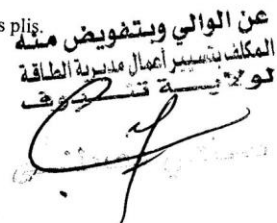 s plis.
عن الوالي وبتفويض منه
المكلف بتسيير أعمال مديرية الطاقة
لولايـــة تنـــدوف